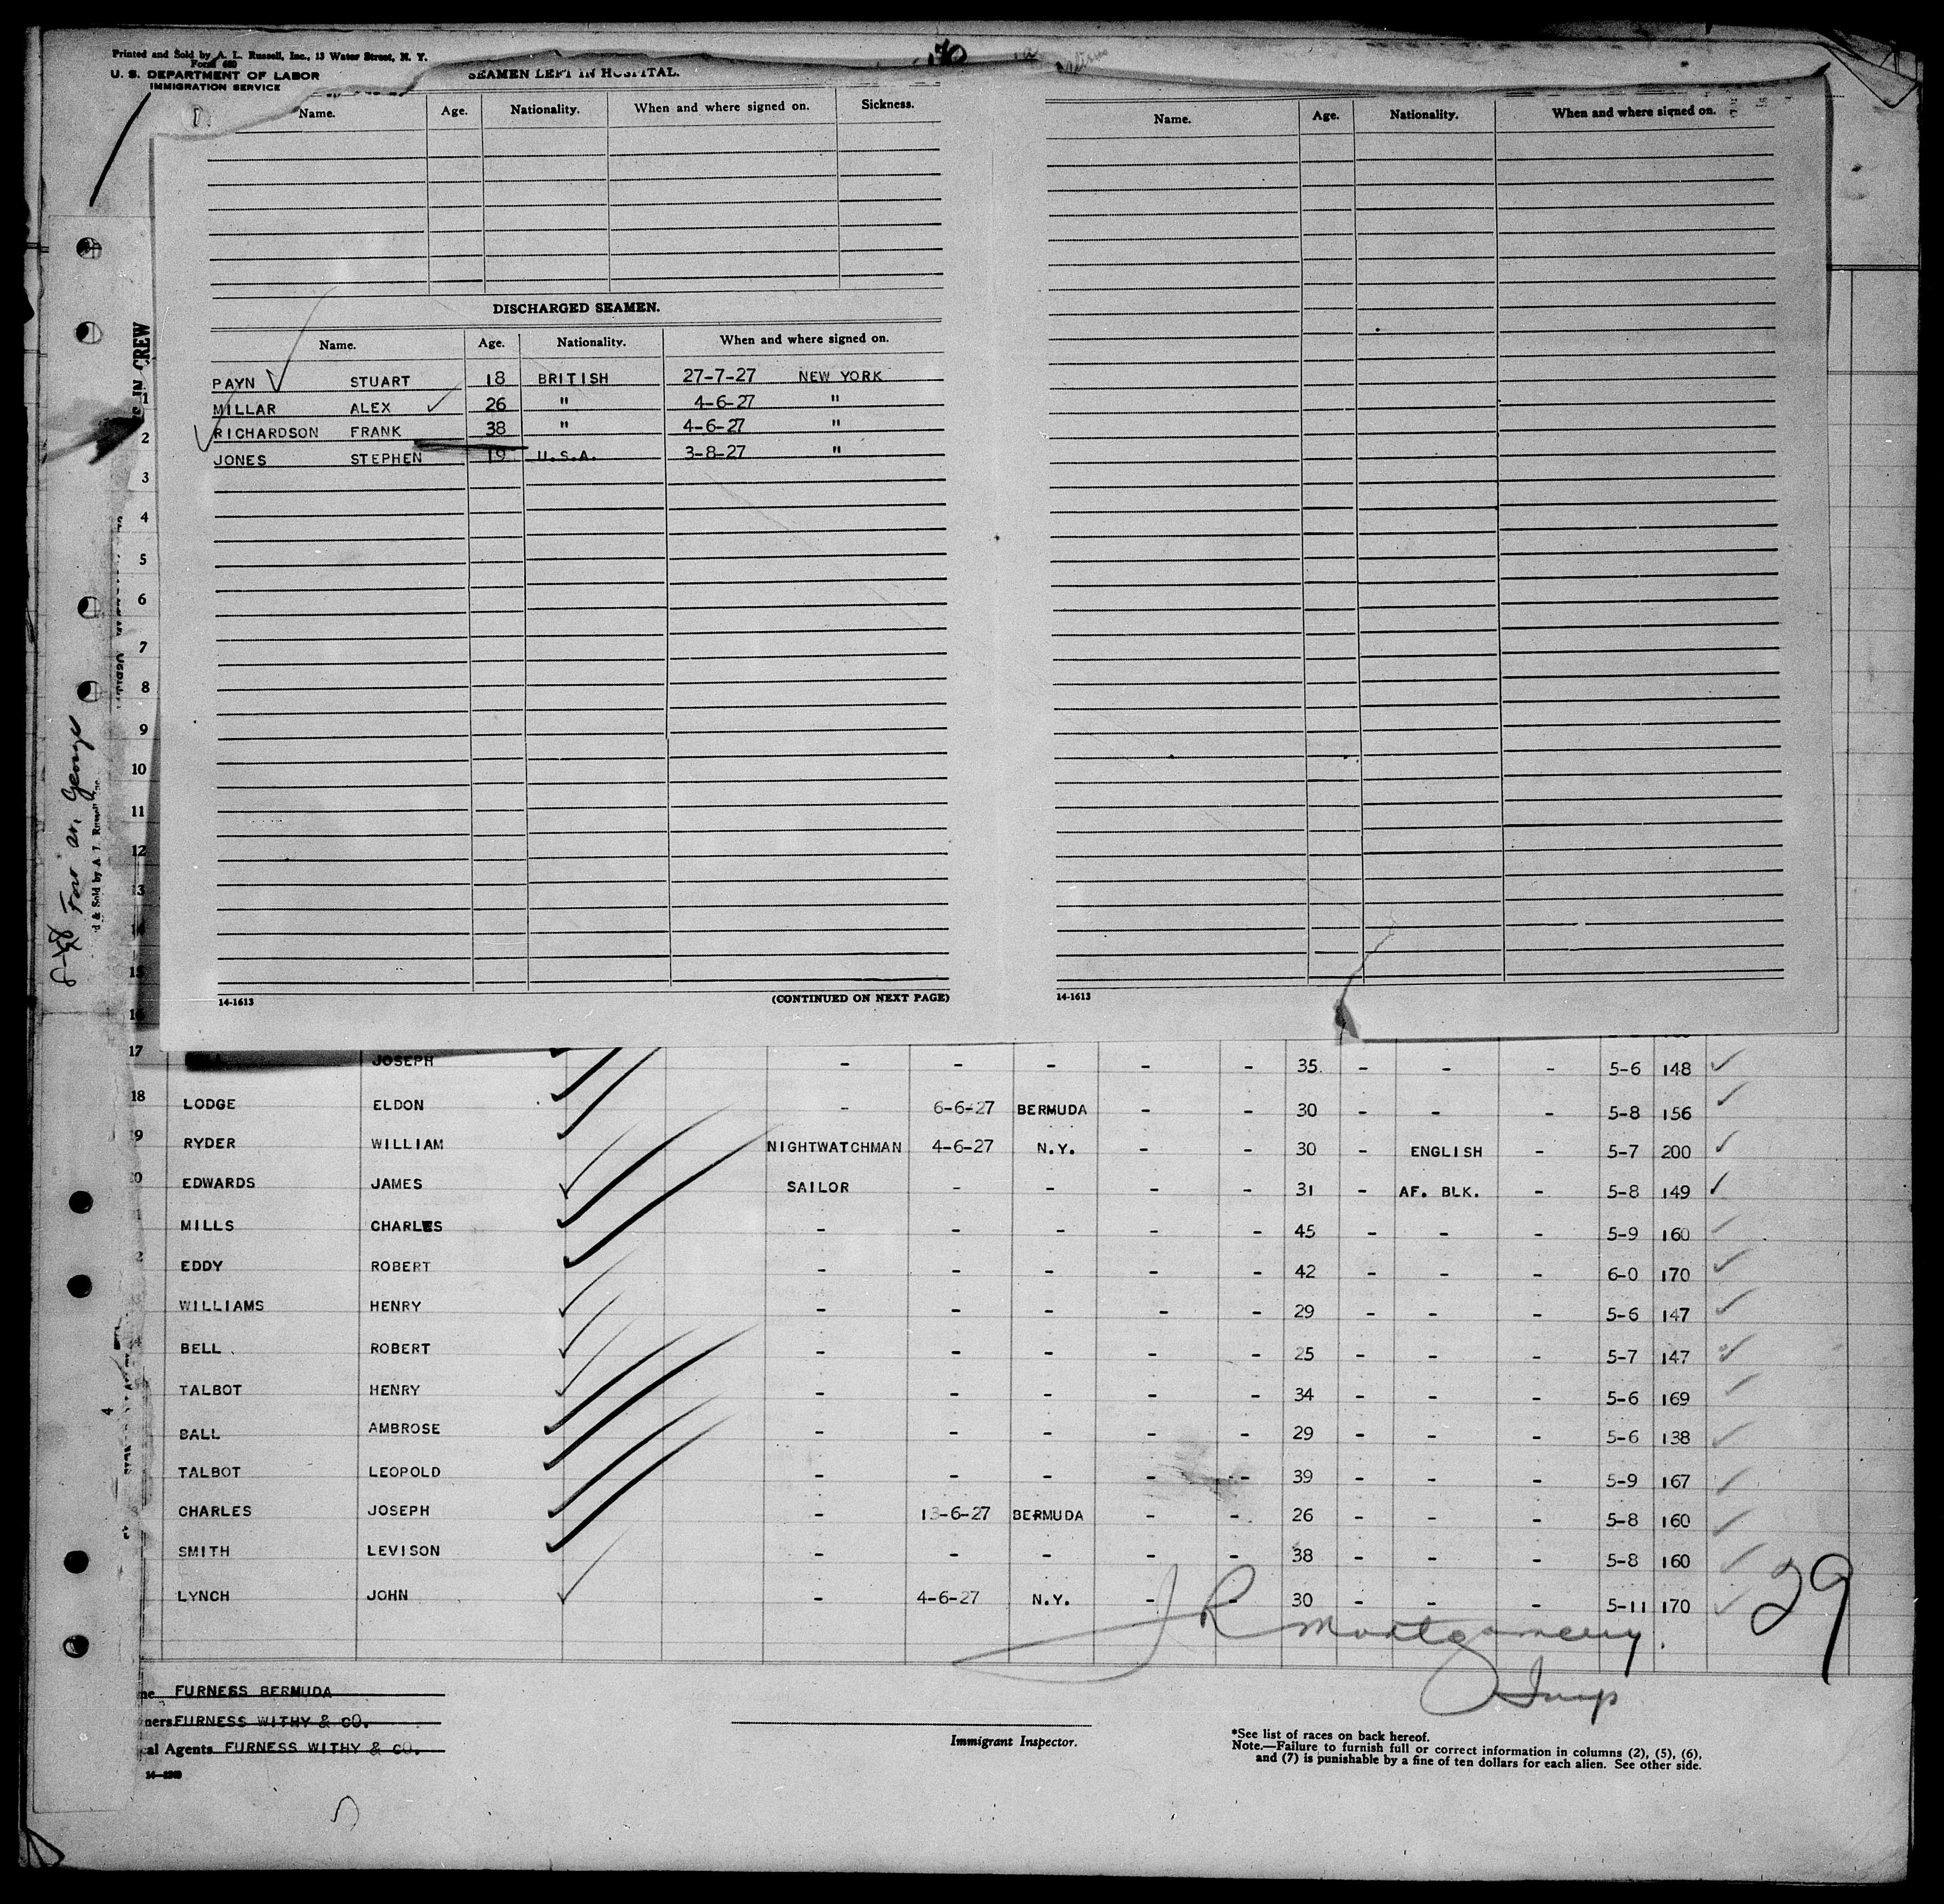 Printed and Sold by A. L. Russell, Inc., 13 Water Street, N. Y.
Form 680
U. S. DEPARTMENT OF LABOR
IMMIGRATION SERVICE
SEAMEN LEFT IN HOSPITAL.
Name. Age. Nationality. When and where signed on. Sickness.
DISCHARGED SEAMEN.
Name. Age. Nationality. When and where signed on.
PAYN STUART 18 BRITISH 27-7-27 NEW YORK
MILLAR ALEX 26 " 4-6-27 "
RICHARDSON FRANK 38 " 4-6-27 "
JONES STEPHEN 19 U.S.A. 3-8-27 "
14-1613 (CONTINUED ON NEXT PAGE)
Name. Age. Nationality. When and where signed on.
14-1613
IN CREW
1
2
3
4
5
6
7
8
9
10
11
12
13
14
15
16
Fort St. George
d & Sold by A. L. Russell, Inc.
17 JOSEPH - - - - - 35 - - - 5-6 148
18 LODGE ELDON - 6-6-27 BERMUDA - - 30 - - - 5-8 156
9 RYDER WILLIAM NIGHTWATCHMAN 4-6-27 N.Y. - - 30 - ENGLISH - 5-7 200
0 EDWARDS JAMES SAILOR - - - - 31 - AF. BLK. - 5-8 149
1 MILLS CHARLES - - - - - 45 - - - 5-9 160
2 EDDY ROBERT - - - - - 42 - - - 6-0 170
WILLIAMS HENRY - - - - - 29 - - - 5-6 147
4 BELL ROBERT - - - - - 25 - - - 5-7 147
TALBOT HENRY - - - - - 34 - - - 5-6 169
BALL AMBROSE - - - - - 29 - - - 5-6 138
TALBOT LEOPOLD - - - - - 39 - - - 5-9 167
8 CHARLES JOSEPH - 13-6-27 BERMUDA - - 26 - - - 5-8 160
SMITH LEVISON - - - - - 38 - - - 5-8 160
LYNCH JOHN - 4-6-27 N.Y. - - 30 - - - 5-11 170
29
J R Montgomery
Insp
ne FURNESS BERMUDA
ners FURNESS WITHY & CO.
cal Agents FURNESS WITHY & CO.
Immigrant Inspector.
*See list of races on back hereof.
Note.—Failure to furnish full or correct information in columns (2), (5), (6),
and (7) is punishable by a fine of ten dollars for each alien. See other side.